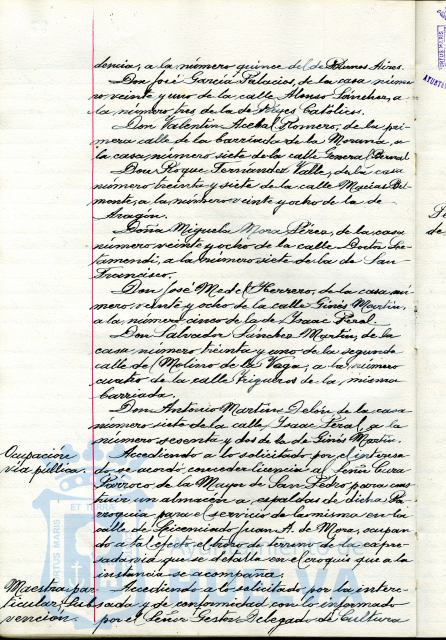 dencia, a la número quince de la de Buenos Aires.
Don José García Palacios, de la casa núme-
ro veinte y uno de la calle Alonso Sánchez, a
la número tres de la de Reyes Católicos.
Don Valentín Acebal Romero, de la pri-
mera calle de la barriada de la Morana, a
la casa número siete de la calle General
Don Roque Fernández Valle, de la casa
número treinta y siete de la calle Macías Bel-
monte, a la número veinte y ocho de la de
Aragón.
Doña Miguela Mora Pérez, de la casa
número veinte y ocho de la calle Doctor Le-
tamendi, a la número siete de la de San
Francisco.
Don José Mede Herrero, de la casa nú-
mero veinte y ocho de la calle Ginés Martín,
a la número cinco de la de Isaac Peral.
Don Salvador Sánchez Martín, de la
casa número treinta y uno de la segunda
calle de Molino de la Vega, a la número
cuatro de la calle Trigueros de la misma
barriada.
Don Antonio Martín de la casa
número siete de la calle Isaac Peral, a la
número sesenta y dos de la de Ginés Martín.
Ocupación
vía pública.
Accediendo a lo solicitado por el interesa-
do se acordó conceder licencia al Señor Cura
Párroco de la Mayor de San Pedro para cons-
truir un almacén a espaldas de dicha Pa-
rroquia para el servicio de la misma en la
calle de Licenciado Juan A. de Mora, ocupan-
do a tal efecto el trozo de terreno de la expre-
sada vía que se detalla en el croquis que a la
instancia se acompaña.
Maestra par-
ticular, Sub-
vención.
Accediendo a lo solicitado por la intere-
sada y de conformidad con lo informado
por el Señor Gestor Delegado de Cultura
PORTUS MARIS ET
Ayuntamiento de
HUELVA